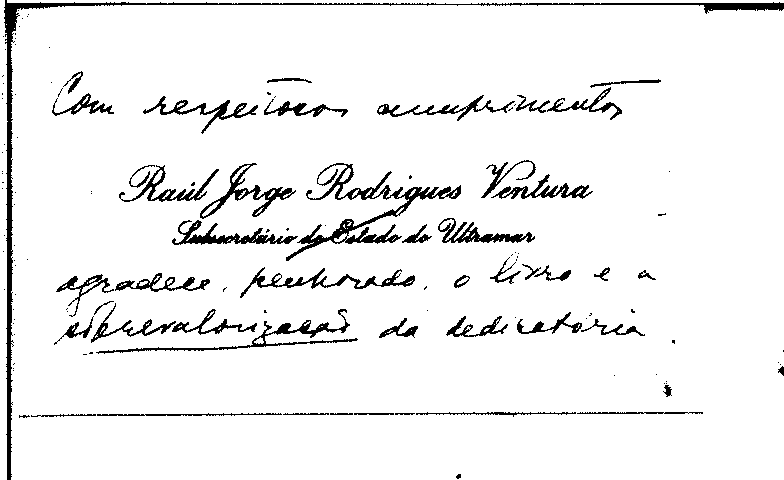 Com respeitosos cumprimentos
Raúl Jorge Rodrigues Ventura
Subsecretário de Estado do Ultramar
agradece, penhorado, o livro e a
sobrevalorização da dedicatória.